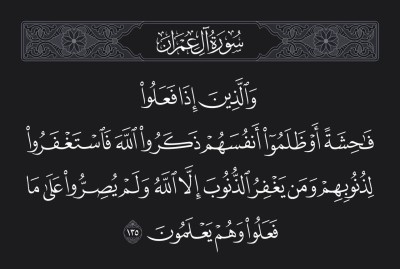 سُورَةُ آلِ عِمْرَان
وَالَّذِينَ إِذَا فَعَلُوا۟
فَـٰحِشَةً أَوْ ظَلَمُوٓا۟ أَنفُسَهُمْ ذَكَرُوا۟ اللَّهَ فَاسْتَغْفَرُوا۟
لِذُنُوبِهِمْ وَمَن يَغْفِرُ الذُّنُوبَ إِلَّا اللَّهُ وَلَمْ يُصِرُّوا۟ عَلَىٰ مَا
فَعَلُوا۟ وَهُمْ يَعْلَمُونَ ١٣٥